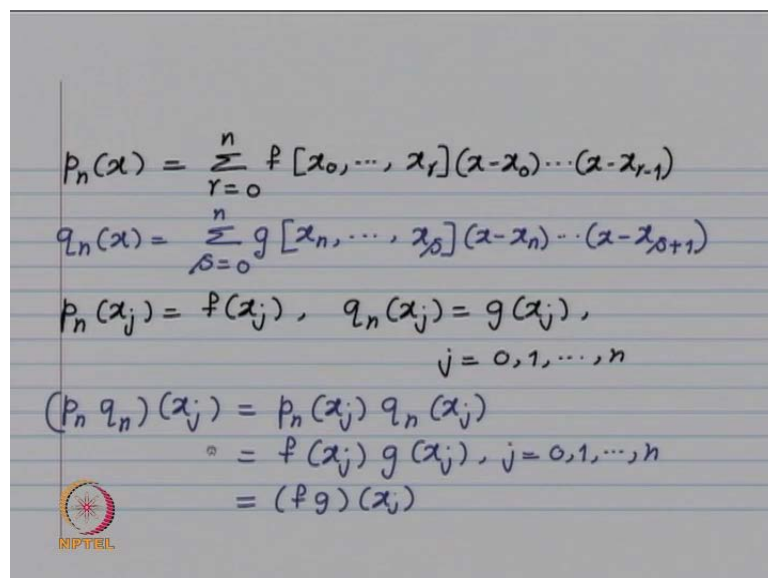 pₙ(x) = Σ_{r=0}^{n} f[x₀, ⋯, xᵣ](x-x₀)⋯(x-xᵣ₋₁)
qₙ(x) = Σ_{s=0}^{n} g[xₙ, ⋯, xₛ](x-xₙ)⋯(x-xₛ₊₁)
pₙ(xⱼ) = f(xⱼ), qₙ(xⱼ) = g(xⱼ),
j = 0,1,⋯,n
(pₙ qₙ)(xⱼ) = pₙ(xⱼ) qₙ(xⱼ)
= f(xⱼ) g(xⱼ), j = 0,1,⋯,n
= (fg)(xⱼ)
NPTEL